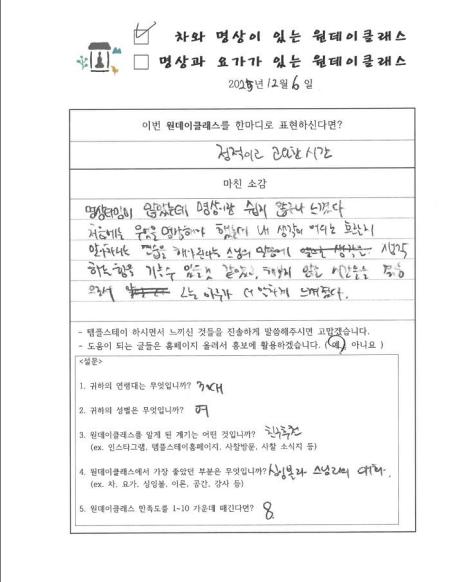 차와 명상이 있는 원데이클래스
명상과 요가가 있는 원데이클래스
2025년 12월 6일
이번 원데이클래스를 한마디로 표현하신다면?
정적이고 고요한 시간
마친 소감
명상타임이 있었는데 명상이란 쉽지 않구나 느꼈다
처음에는 무엇을 명상해야 했는데 내 생각이 어디로 흐르는지
알아차리는 연습을 해야된다는 스님의 말씀에 생각
하는 힘을 기를 수 있을것 같았고, 해보지 않은 시간들을
으로서 오늘 하루가 더 편하게 느껴졌다.
- 템플스테이 하시면서 느끼신 것들을 진솔하게 말씀해주시면 고맙겠습니다.
- 도움이 되는 글들은 홈페이지 올려서 홍보에 활용하겠습니다. (예, 아니요 )
<설문>
1. 귀하의 연령대는 무엇입니까? 30대
2. 귀하의 성별은 무엇입니까? 여
3. 원데이클래스를 알게 된 계기는 어떤 것입니까? 친구추천
(ex. 인스타그램, 템플스테이홈페이지, 사찰방문, 사찰 소식지 등)
4. 원데이클래스에서 가장 좋았던 부분은 무엇입니까? 싱잉볼과 스님과의 대화.
(ex. 차, 요가, 싱잉볼, 이론, 공간, 강사 등)
5. 원데이클래스 만족도를 1~10 가운데 매긴다면? 8.